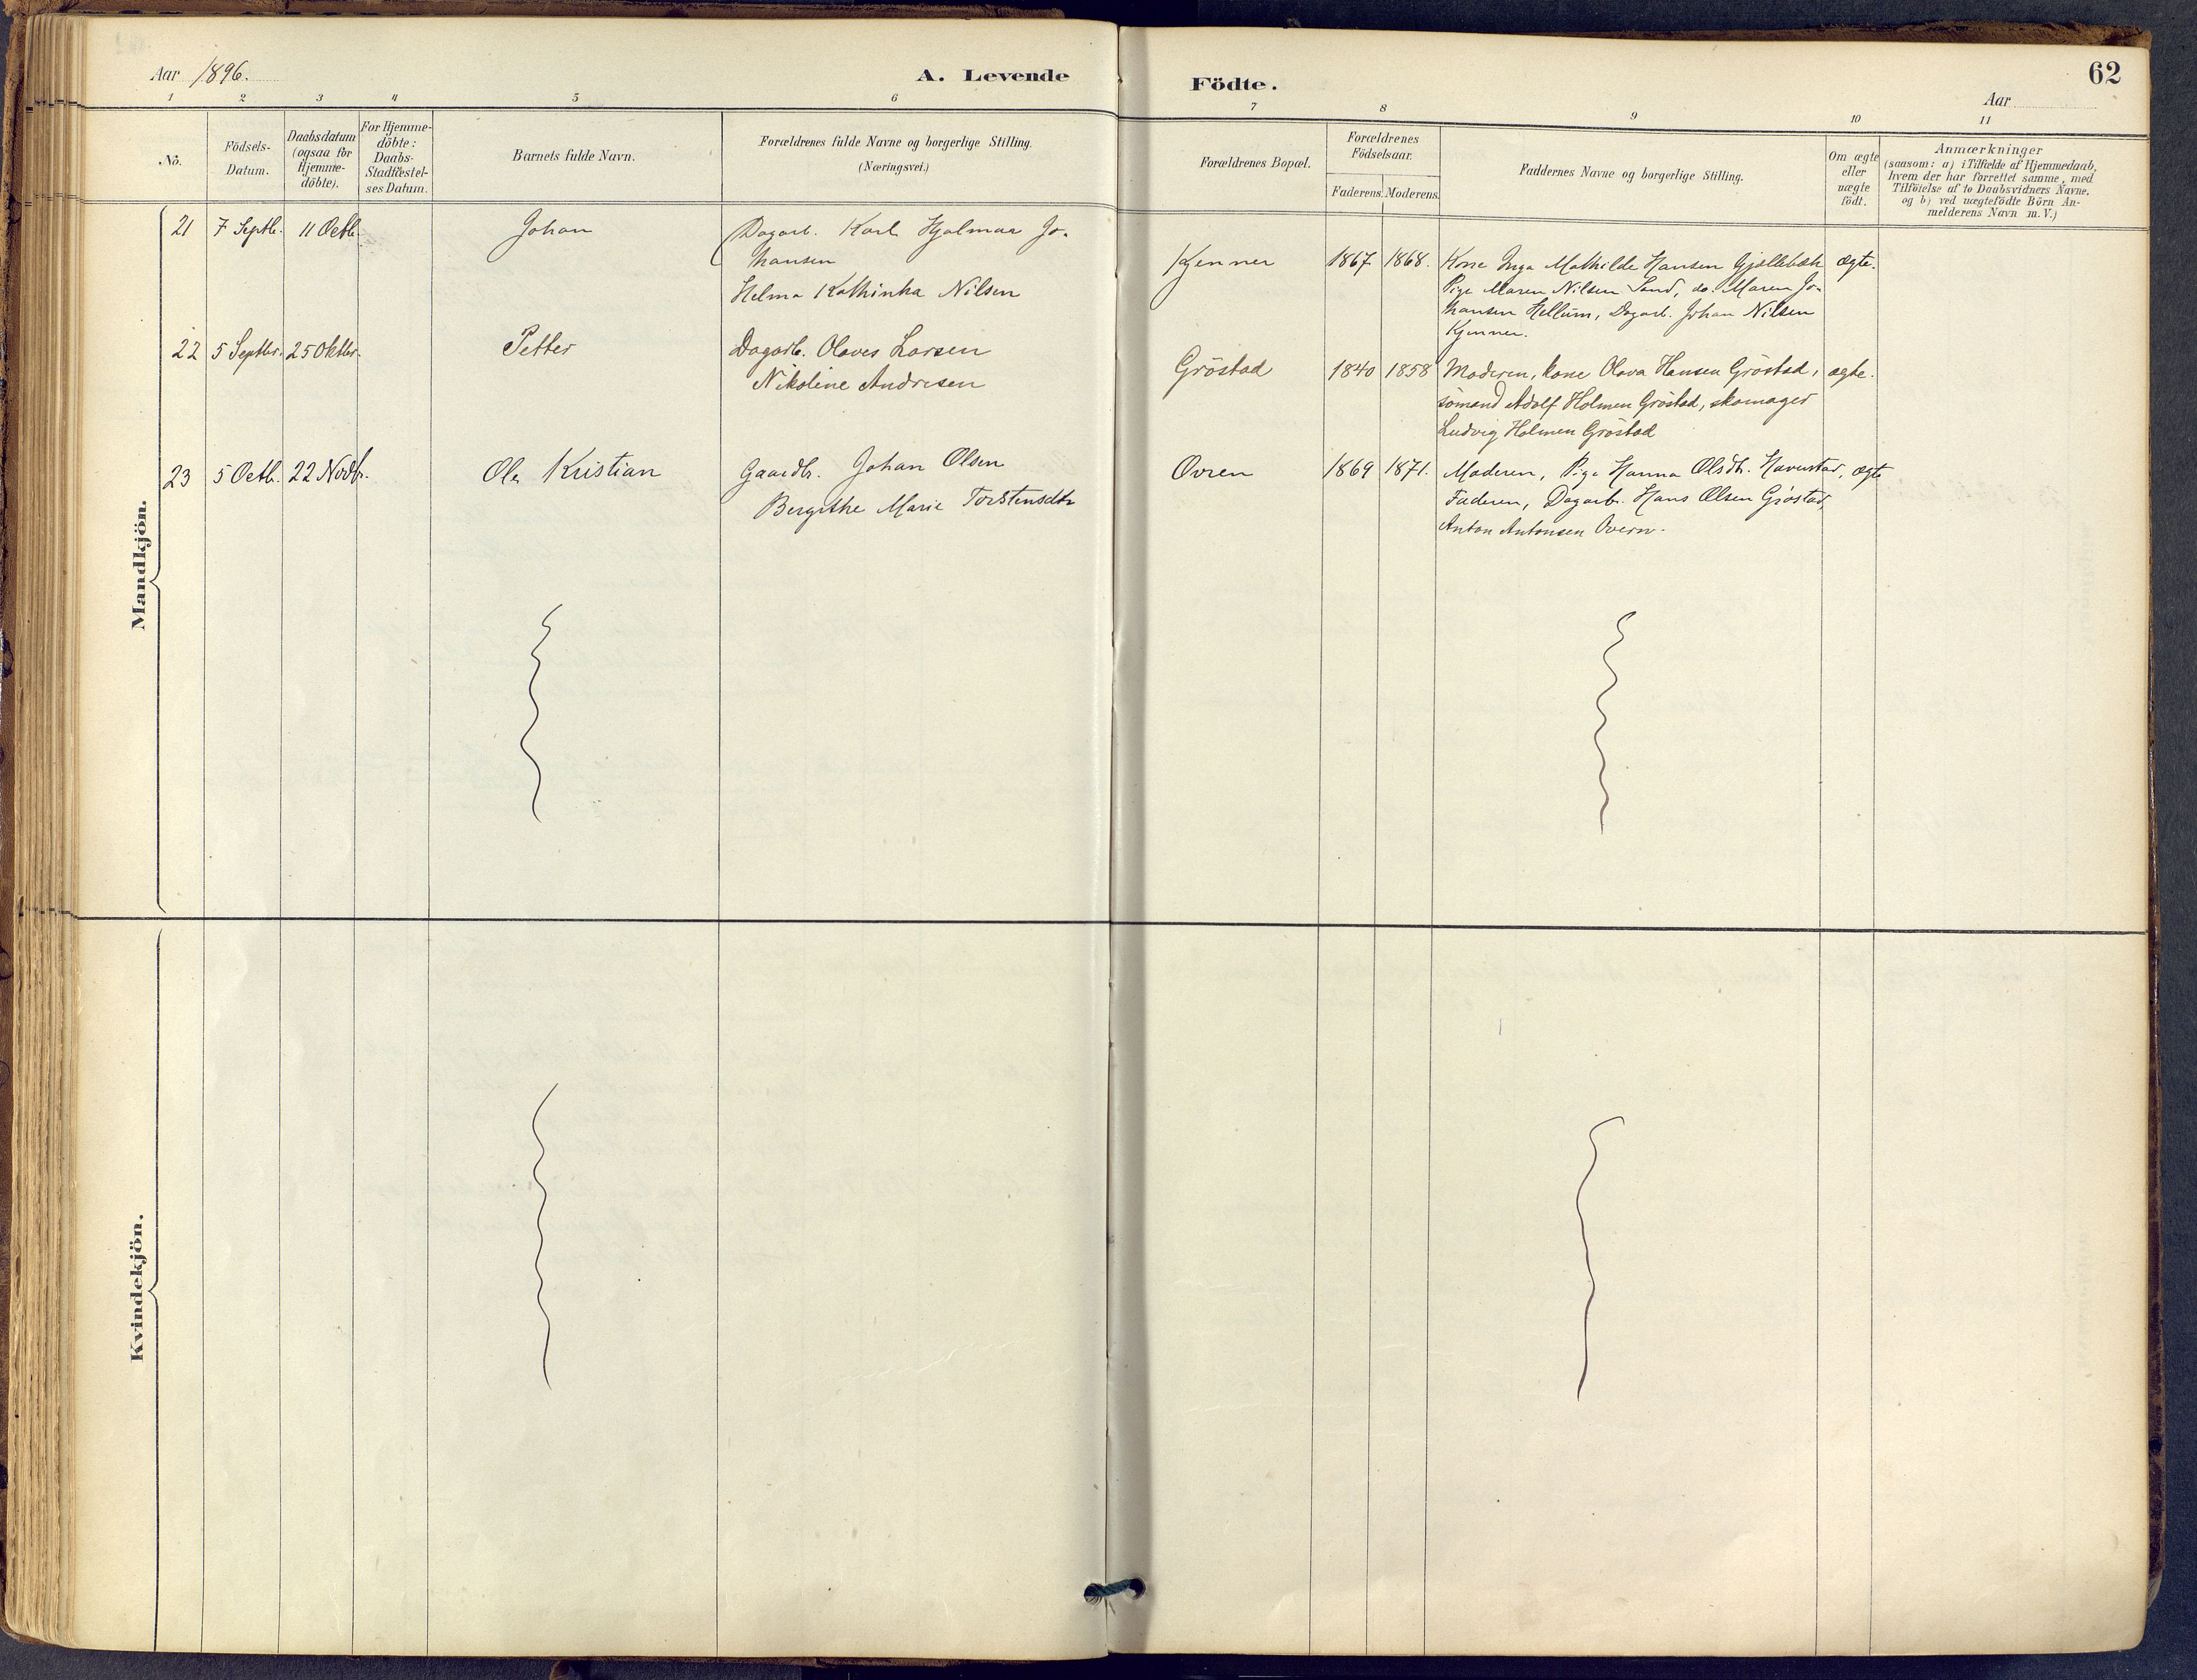 Aar 1896.
A. Levende
Födte.
62
Aar
1 2 3 4 5 6 7 8 9 10 11
No.
Födsels-
Datum.
Daabsdatum
(ogsaa for
Hjemme-
döbte).
For Hjemme-
döbte:
Daabs-
Stadfæstel-
ses Datum.
Barnets fulde Navn.
Forældrenes fulde Navne og borgerlige Stilling.
(Næringsvei.)
Forældrenes Bopæl.
Forældrenes
Födselsaar.
Faderens. Moderens.
Faddernes Navne og borgerlige Stilling.
Om ægte
eller
uægte
födt.
Anmærkninger
(saasom: a) i Tilfælde af Hjemmedaab,
hvem der har forrettet samme, med
Tilföielse af to Daabsvidners Navne,
og b) ved uægtefödte Börn An-
melderens Navn m. V.)
Mandkjön.
21 7 Septb. 11 Octb. Johan
Dagarb. Karl Hjalmar Jo-
hansen
Helma Kathinka Nilsen
Kjenner 1867 1868.
Kone Inga Mathilde Hansen Gjellebæk
Pige Maren Nilsen Sand, do. Maren Jo-
hansen Hellum, Dagarb. Johan Nilsen
Kjenner.
ægte.
22 5 Septbr. 25 Oktbr. Petter
Dagarb. Olaves Larsen
Nikoline Andresen
Gröstad 1840 1858
Moderen, kone Olava Hansen Gröstad,
sömand Adolf Holmen Gröstad, skomager
Ludvig Holmen Gröstad
ægte.
23 5 Octb. 22 Novbr. Ole Kristian
Gaardb. Johan Olsen
Bergithe Marie Torstensdtr
Ovren 1869 1871.
Moderen, Pige Hanna Olsdtr. Haverstad,
Faderen, Dagarb. Hans Olsen Gröstad,
Anton Antonsen Overn.
ægte
Kvindekjön.